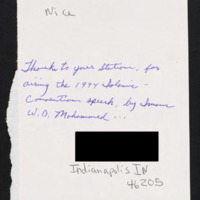 Nice
Thanks to your Station, for
airing the 1994 Islamic -
Convention speech, by Imam
W.D. Mohammed...
Indianapolis IN
46205